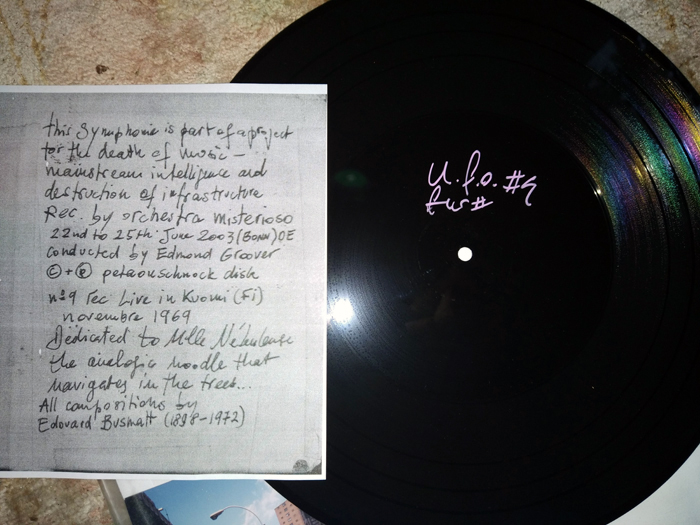 this symphonie is part of a project
for the death of music -
mainstream intelligence and
destruction of infrastructure
Rec. by orchestra misterioso
22nd to 25th June 2003 (BONN) DE
conducted by Edmond Groover
© + ℗ petaouschnock disk
n°9 rec live in Kuomi (Fi)
novembre 1969
Dédicated to Mlle Nébuleuse
the analogic noodle that
navigates in the trees...
All compositions by
Edouard Busmatt (1898-1972)
U.f.o. #9
für #